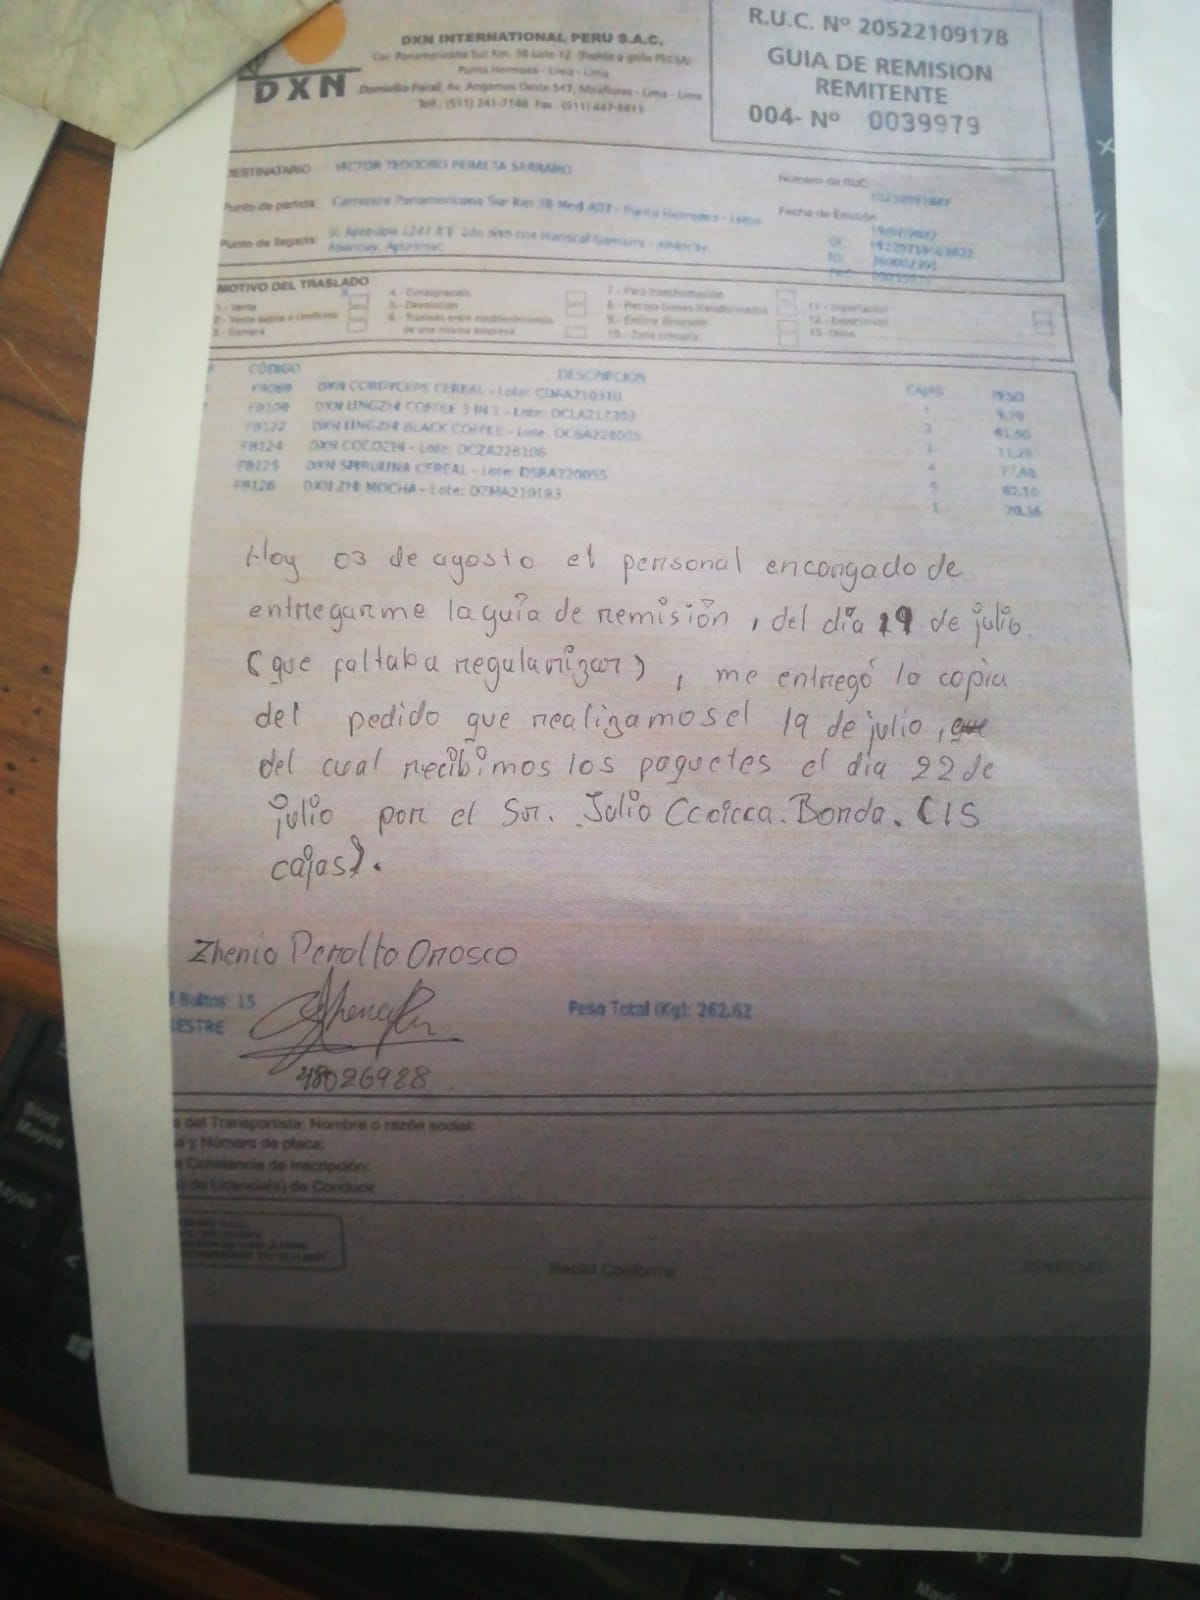 DXN
DXN INTERNATIONAL PERU S.A.C.
Car. Panamericana Sur Km. 38 Lote 12 (Frente a grifo PECSA)
Punta Hermosa - Lima - Lima
Domicilio Fiscal: Av. Angamos Oeste 547, Miraflores - Lima - Lima
Telf.: (511) 241-7148 Fax: (511) 447-8813
R.U.C. Nº 20522109178
GUIA DE REMISION
REMITENTE
004- Nº 0039979
DESTINATARIO VICTOR TEODORO PERALTA SERRANO
Número de RUC
Punto de partida: Carretera Panamericana Sur Km 38 Mnd A07 - Punta Hermosa - Lima
Fecha de Emisión
19/07/2022
Punto de llegada: Arequipa 1247 2do piso con Mariscal Gamarra - Abancay,
Abancay, Apurimac
MOTIVO DEL TRASLADO
1.- Venta
2.- Venta sujeta a confirmar
3.- Compra
4.- Consignación
5.- Devolución
6.- Traslado entre establecimientos
de una misma empresa
7.- Para transformación
8.- Recojo bienes transformados
9.- Emisor itinerante
10.- Zona primaria
11.- Importación
12.- Exportación
13.- Otros
CÓDIGO DESCRIPCION CAJAS PESO
FB069 DXN CORDYCEPS CEREAL - Lote: CDAA210310 1
FB109 DXN LINGZHI COFFEE 3 IN 1 - Lote: DCLA217393 3
FB122 DXN LINGZHI BLACK COFFEE - Lote: DCBA228005 11,28
FB124 DXN COCOZHI - Lote: DCZA228106 4
FB125 DXN SPIRULINA CEREAL - Lote: DSRA220055 5 82.10
FB126 DXN ZHI MOCHA - Lote: DZMA210183 1 20.36
Hoy 03 de agosto el personal encargado de
entregarme la guía de remisión, del día 19 de julio
(que faltaba regularizar), me entregó la copia
del pedido que realizamos el 19 de julio, que
del cual recibimos los paquetes el día 22 de
julio por el Sr. Julio Ccoicca Bonda. (15
cajas).
Zhenia Peralta Orosco
Bultos: 15
Peso Total (Kg): 262.62
ESTRE
48026928
del Transportista: Nombre o razón social:
y Número de placa:
Constancia de Inscripción:
de Licencia(s) de Conducir
Recibí Conforme